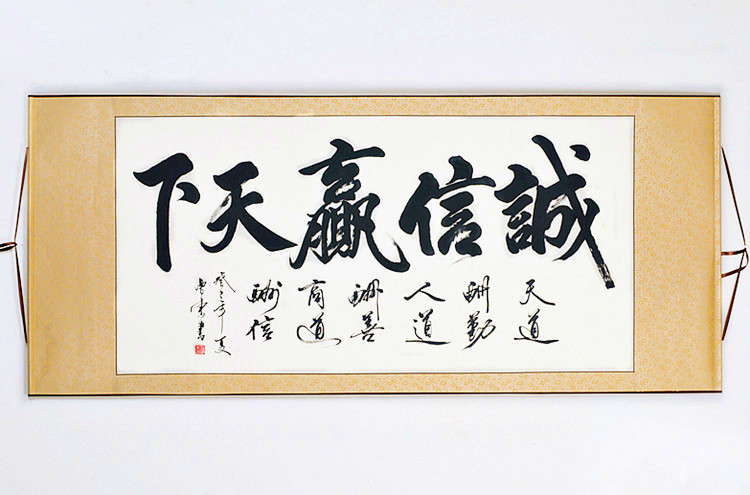 誠信贏天下
天道
酬勤
人道
酬善
商道
酬信
癸巳年夏